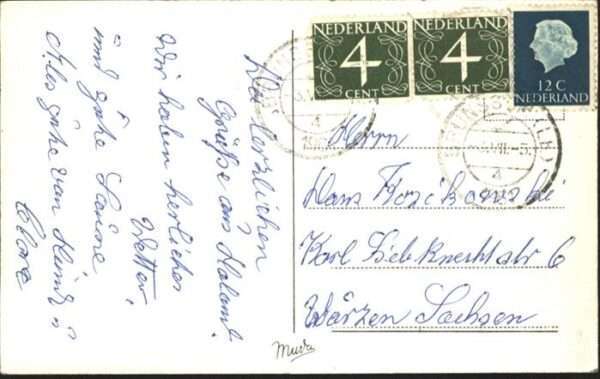 NEDERLAND
4
CENT
NEDERLAND
4
CENT
12 C
NEDERLAND
Herzlichen
Grüße aus Holand.
Wir haben herliches
Wetter,
und gute Laune
Alles gute von Heinz u
Clare
Herrn
Hans
Karl Liebknechtstr 6
Würzen Sachsen